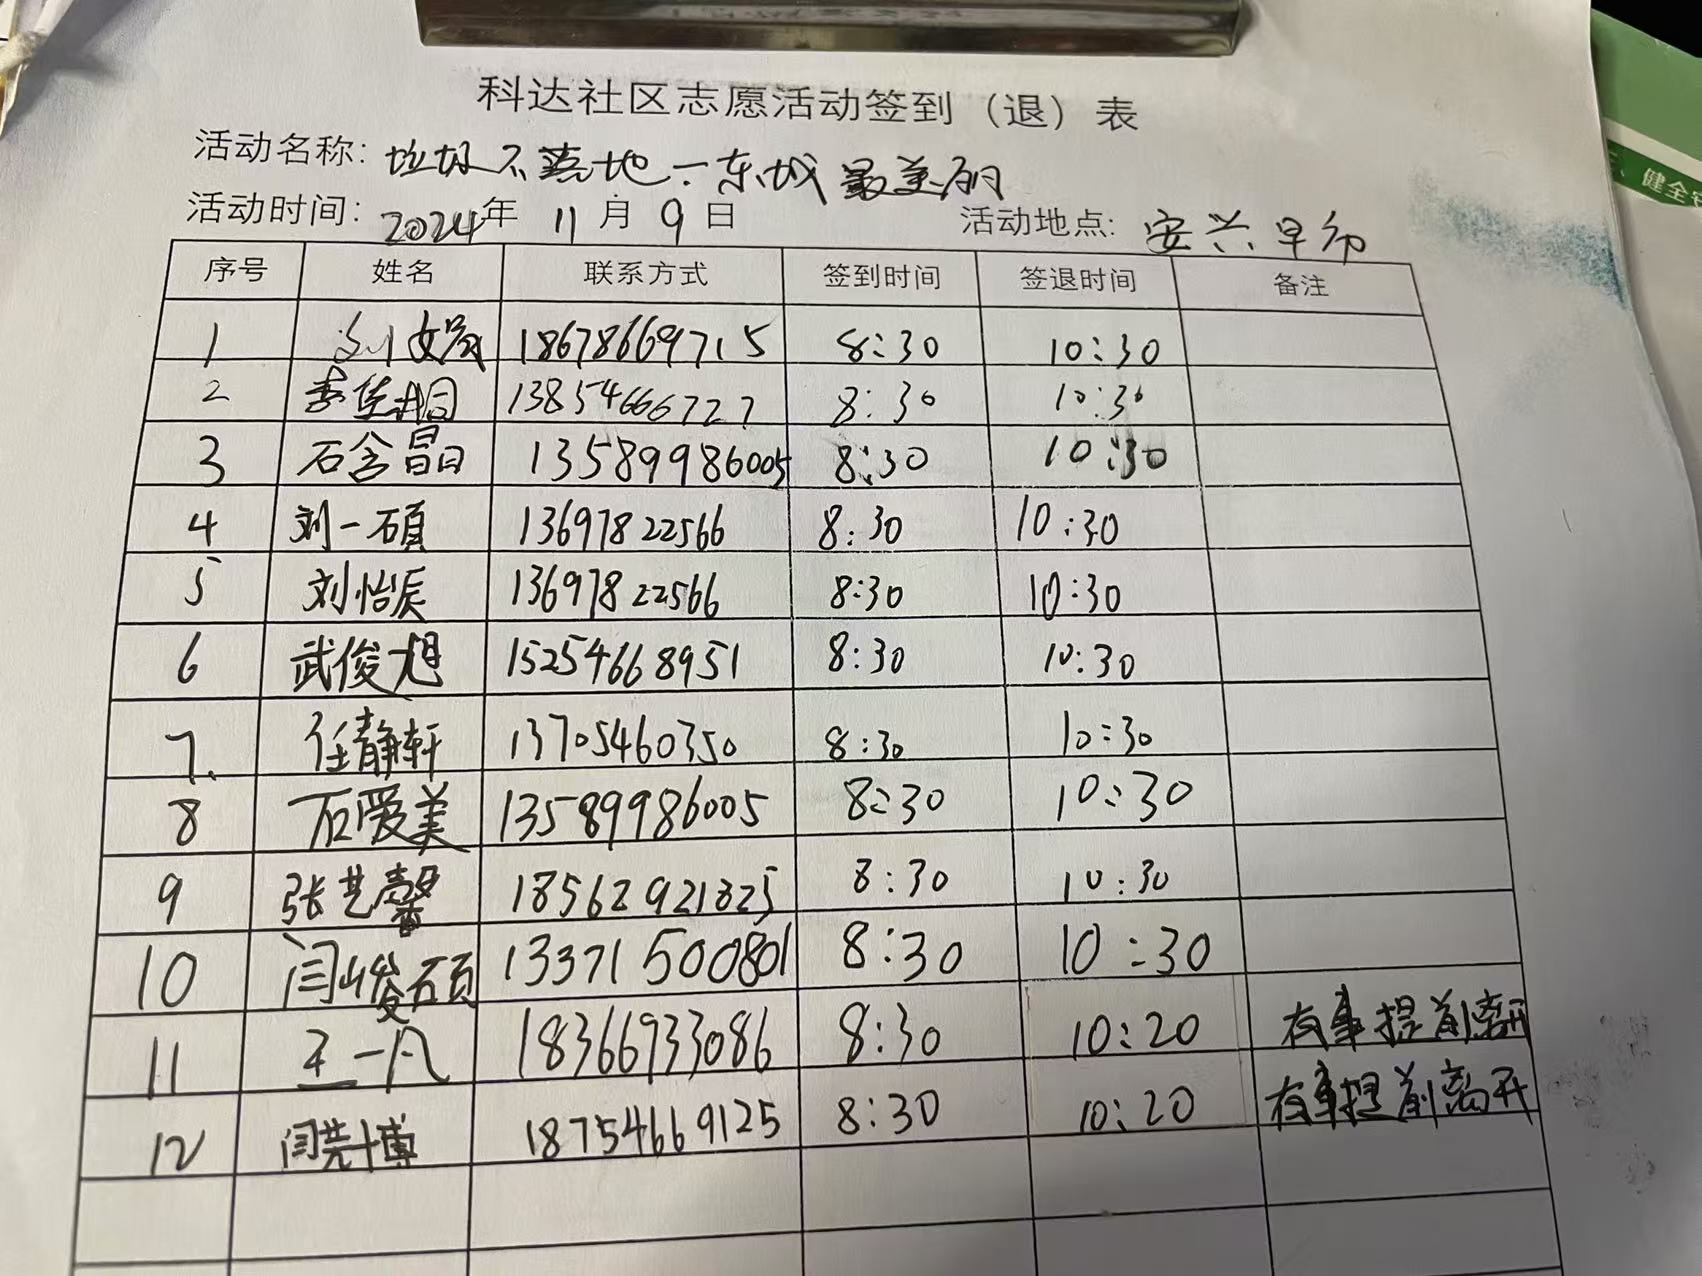 科达社区志愿活动签到（退）表
活动名称：垃圾不落地·东城最美丽
活动时间：2024年 11月 9日 活动地点：安兴早市
序号 姓名 联系方式 签到时间 签退时间 备注
1 刘文娟 18678669715 8:30 10:30
2 李佳 13854666727 8:30 10:30
3 石含晶 13589986005 8:30 10:30
4 刘一硕 13697822566 8:30 10:30
5 刘怡辰 13697822566 8:30 10:30
6 武俊旭 15254668951 8:30 10:30
7. 任静轩 13705460350 8:30 10:30
8 石爱美 13589986005 8:30 10:30
9 张艺馨 18562921825 8:30 10:30
10 闫峻硕 13371500801 8:30 10:30
11 王一凡 18366933086 8:30 10:20 有事提前离开
12 闫尧博 18754669125 8:30 10:20 有事提前离开
健全